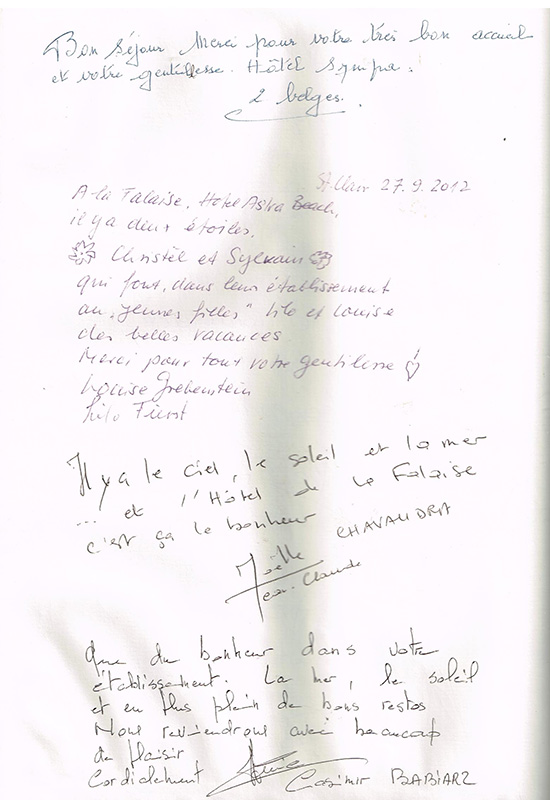 Bon séjour Merci pour votre très bon accueil
et votre gentillesse. Hôtel sympa.
2 belges.
St Clair 27.9.2012
A la Falaise, Hotel Astra Beach,
il y a deux étoiles,
Christèl et Sylvain
qui font, dans leur établissement
au „jeunes filles" Lilo et Louise
des belles vacances
Merci pour tout votre gentilesse
Louise Grebenstein
Lilo Fürst
Il y a le ciel, le soleil et la mer
... et l'Hôtel de la Falaise
c'est ça le bonheur
CHAVANDRA
Joëlle
Jean-Claude
Que du bonheur dans votre
établissement. La mer, le soleil
et en plus plein de bons restos
Nous reviendrons avec beaucoup
de plaisir
Cordialement
Casimir BABIARZ